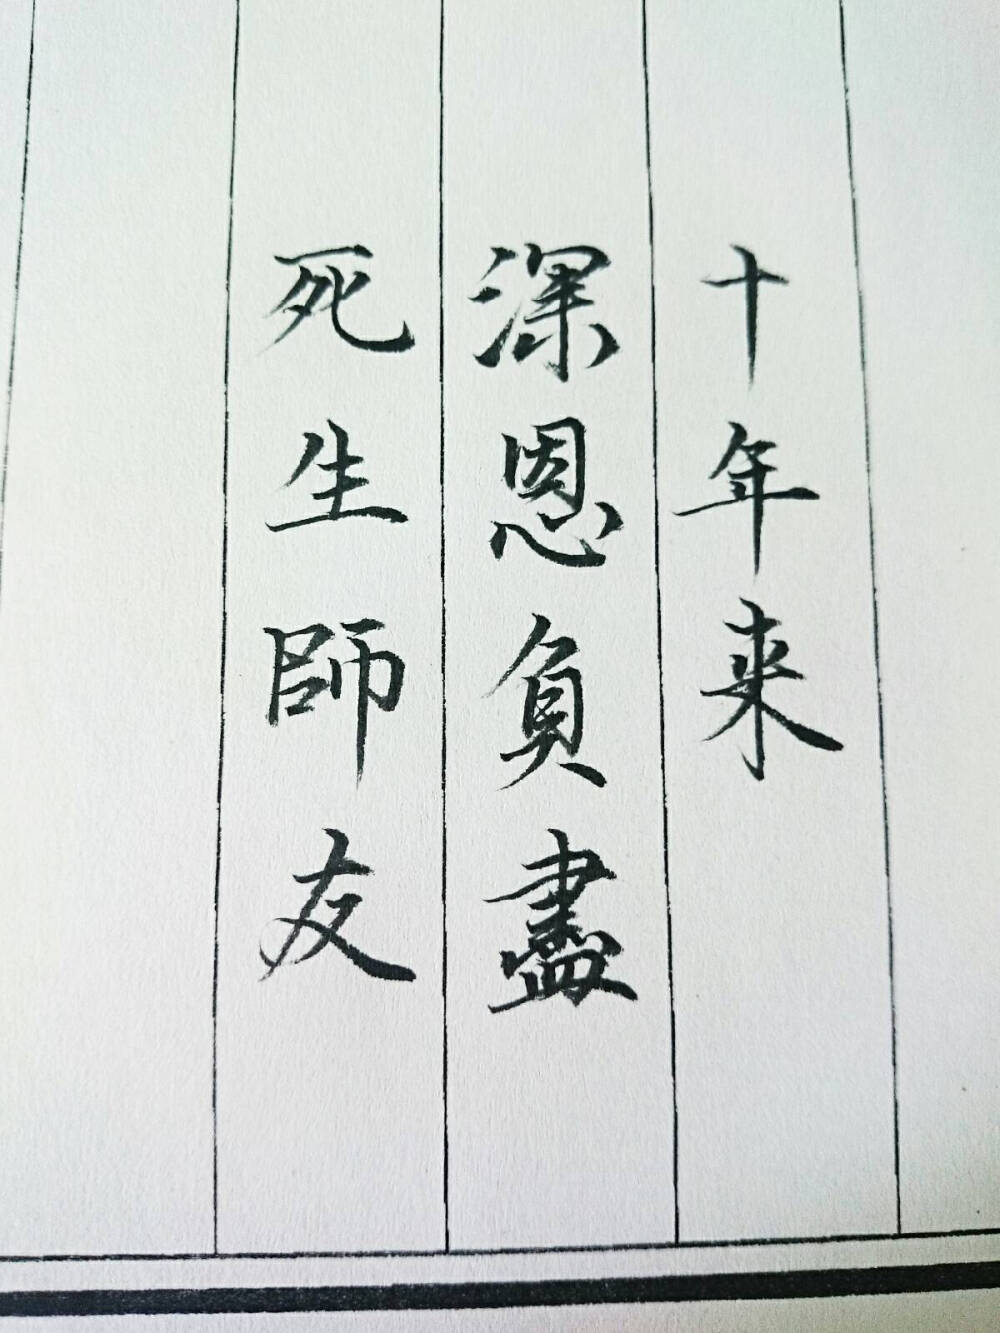 十年来
深恩負盡
死生師友